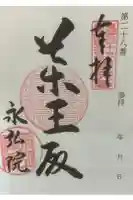 第二十八番
奉拝
年 月 日
薬王殿
永弘院